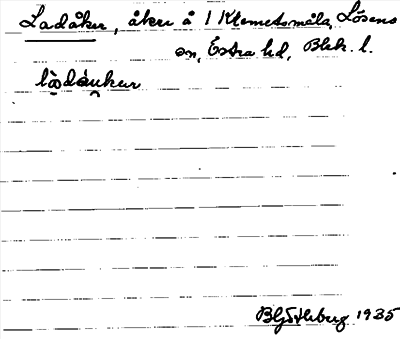 Ladåker, åker å 1 Klemetsmåla, Lösens
sn, Östra hd, Blek. l.
lòdåukur
1935